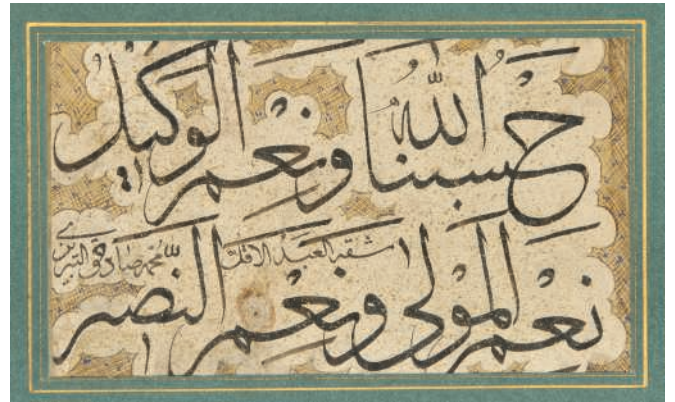 حسبنا الله ونعم الوكيل
مشقه العبد الاقل محمد صادق التبريزي
نعم المولى ونعم النصير